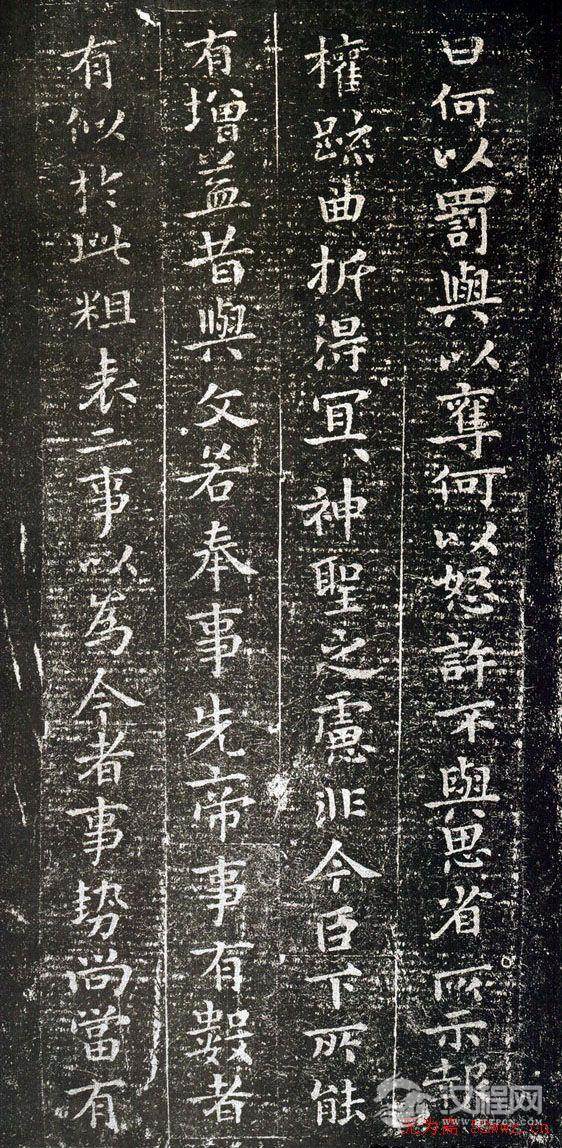 曰何以罰與以奪何以怒許不與思省所示報
權踈曲折得冝神聖之慮非今臣下所能
有增益昔與文若奉事先帝事有數者
有似於此粗表二事以為今者事勢尚當有
汉程网
HTTPCN.COM